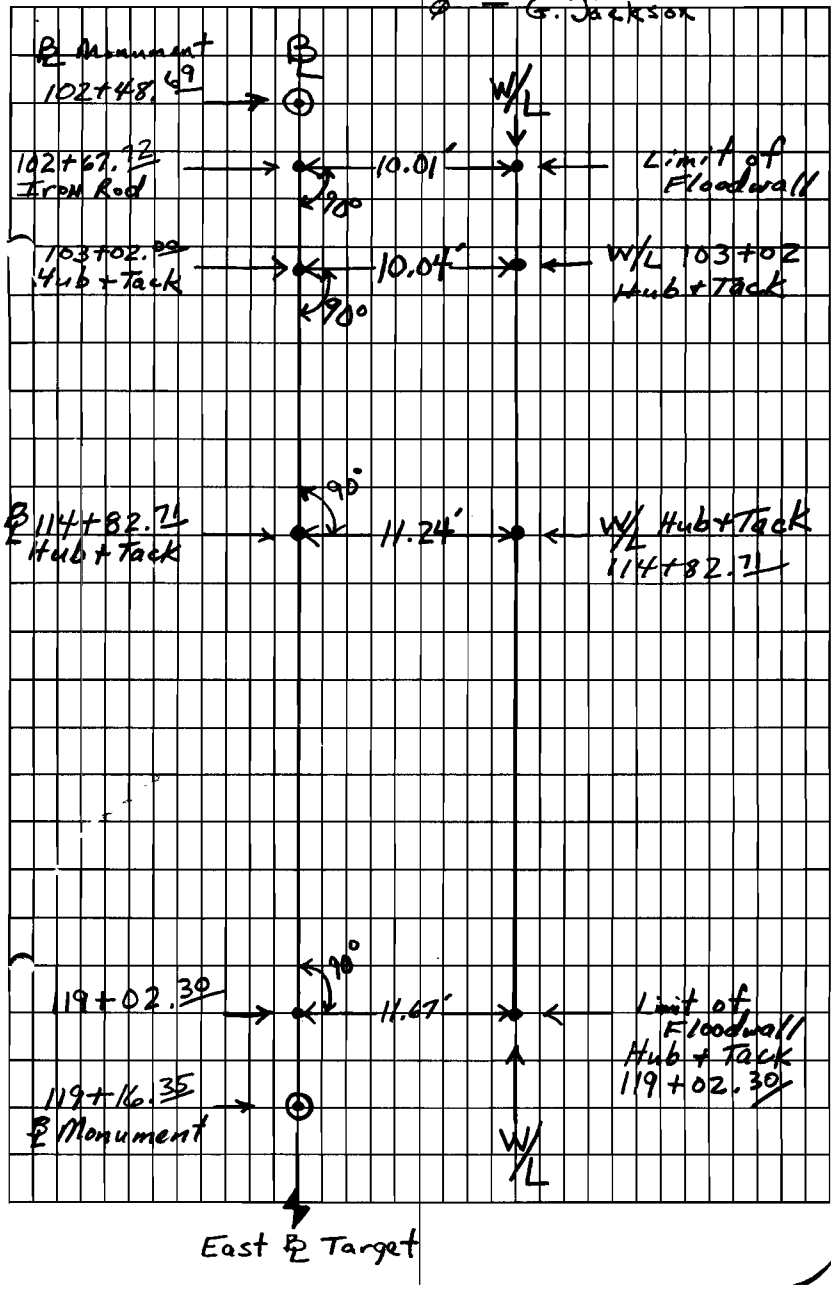 ø – G. Jackson
BL Monument
102+48.69
BL
W/L
102+67.72
Iron Rod
10.01'
90°
Limit of
Floodwall
103+02.00
Hub + Tack
10.04'
90°
W/L 103+02
Hub + Tack
90°
BL 114+82.71
Hub + Tack
11.24'
W/L Hub + Tack
114+82.71
90°
119+02.30
11.67'
Limit of
Floodwall
Hub + Tack
119+02.30
119+16.35
BL Monument
W/L
East BL Target